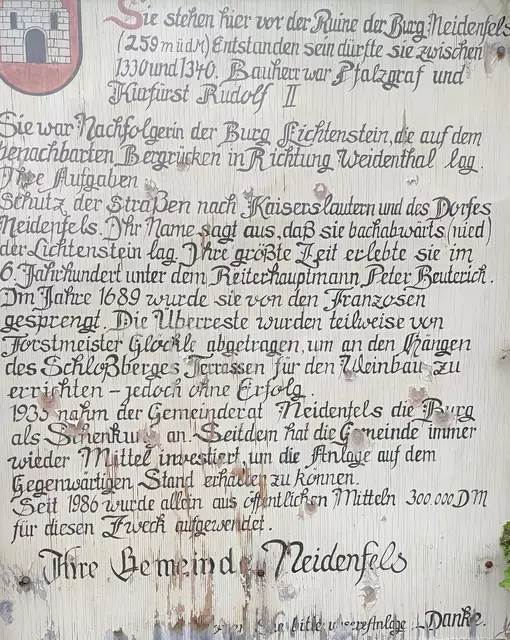 Sie stehen hier vor der Ruine der Burg Neidenfels
(259 m ü d M) Entstanden sein dürfte sie zwischen
1330 und 1340. Bauherr war Pfalzgraf und
Kurfürst Rudolf II
Sie war Nachfolgerin der Burg Lichtenstein, die auf dem
benachbarten Bergrücken in Richtung Weidenthal lag.
Ihre Aufgaben
Schutz der Straßen nach Kaiserslautern und des Dorfes
Neidenfels. Ihr Name sagt aus, daß sie bachabwärts (nied)
der Lichtenstein lag. Ihre größte Zeit erlebte sie im
6. Jahrhundert unter dem Reiterhauptmann Peter Beuterich.
Im Jahre 1689 wurde sie von den Franzosen
gesprengt. Die Überreste wurden teilweise von
Forstmeister Glöckle abgetragen, um an den Hängen
des Schloßberges Terrassen für den Weinbau zu
errichten – jedoch ohne Erfolg.
1935 nahm der Gemeinderat Neidenfels die Burg
als Schenkung an. Seitdem hat die Gemeinde immer
wieder Mittel investiert, um die Anlage auf dem
Gegenwärtigen Stand erhalten zu können.
Seit 1986 wurde allein aus öffentlichen Mitteln 300.000 DM
für diesen Zweck aufgewendet.
Ihre Gemeinde Neidenfels
Sie bitte unsere Anlage – Danke.